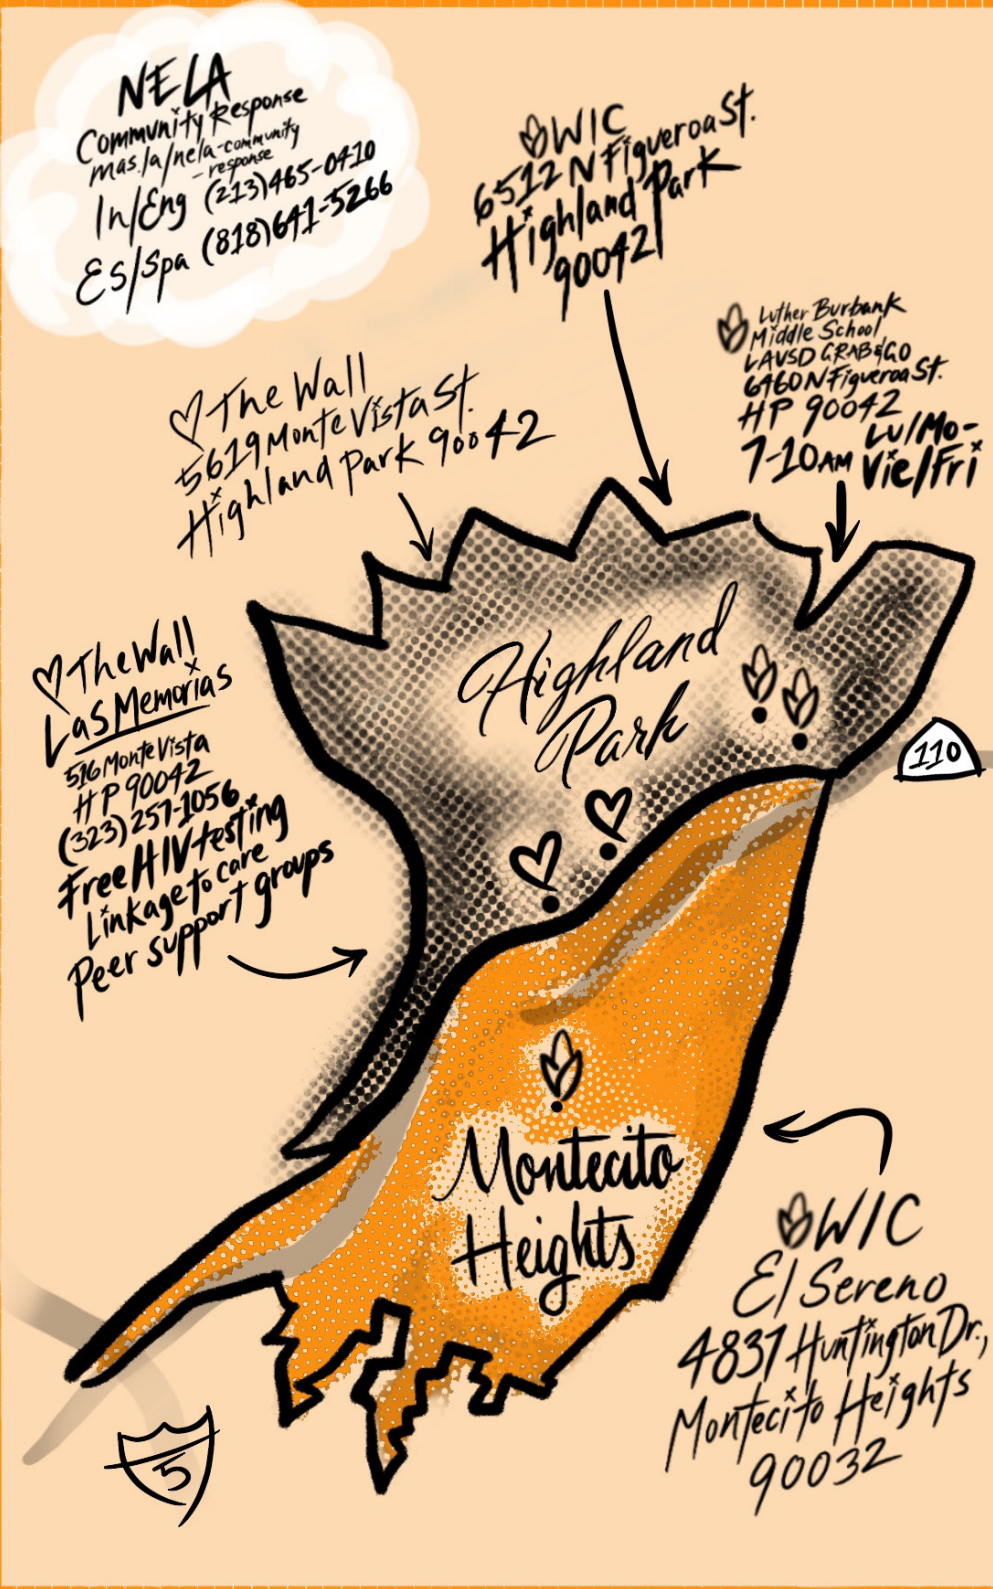 NELA
Community Response
mas.la/nela-community
-response
In/Eng (213)465-0410
Es/Spa (818)641-5266
WIC
6512 N Figueroa St.
Highland Park
90042
Luther Burbank
Middle School
LAUSD GRAB&GO
6460 N Figueroa St.
HP 90042
7-10AM Lu/Mo-
Vie/Fri
The Wall
5619 Monte Vista St.
Highland Park 90042
The Wall
Las Memorias
516 Monte Vista
HP 90042
(323)257-1056
Free HIV testing
Linkage to care
Peer support groups
Highland
Park
110
Montecito
Heights
WIC
El Sereno
4837 Huntington Dr.,
Montecito Heights
90032
5